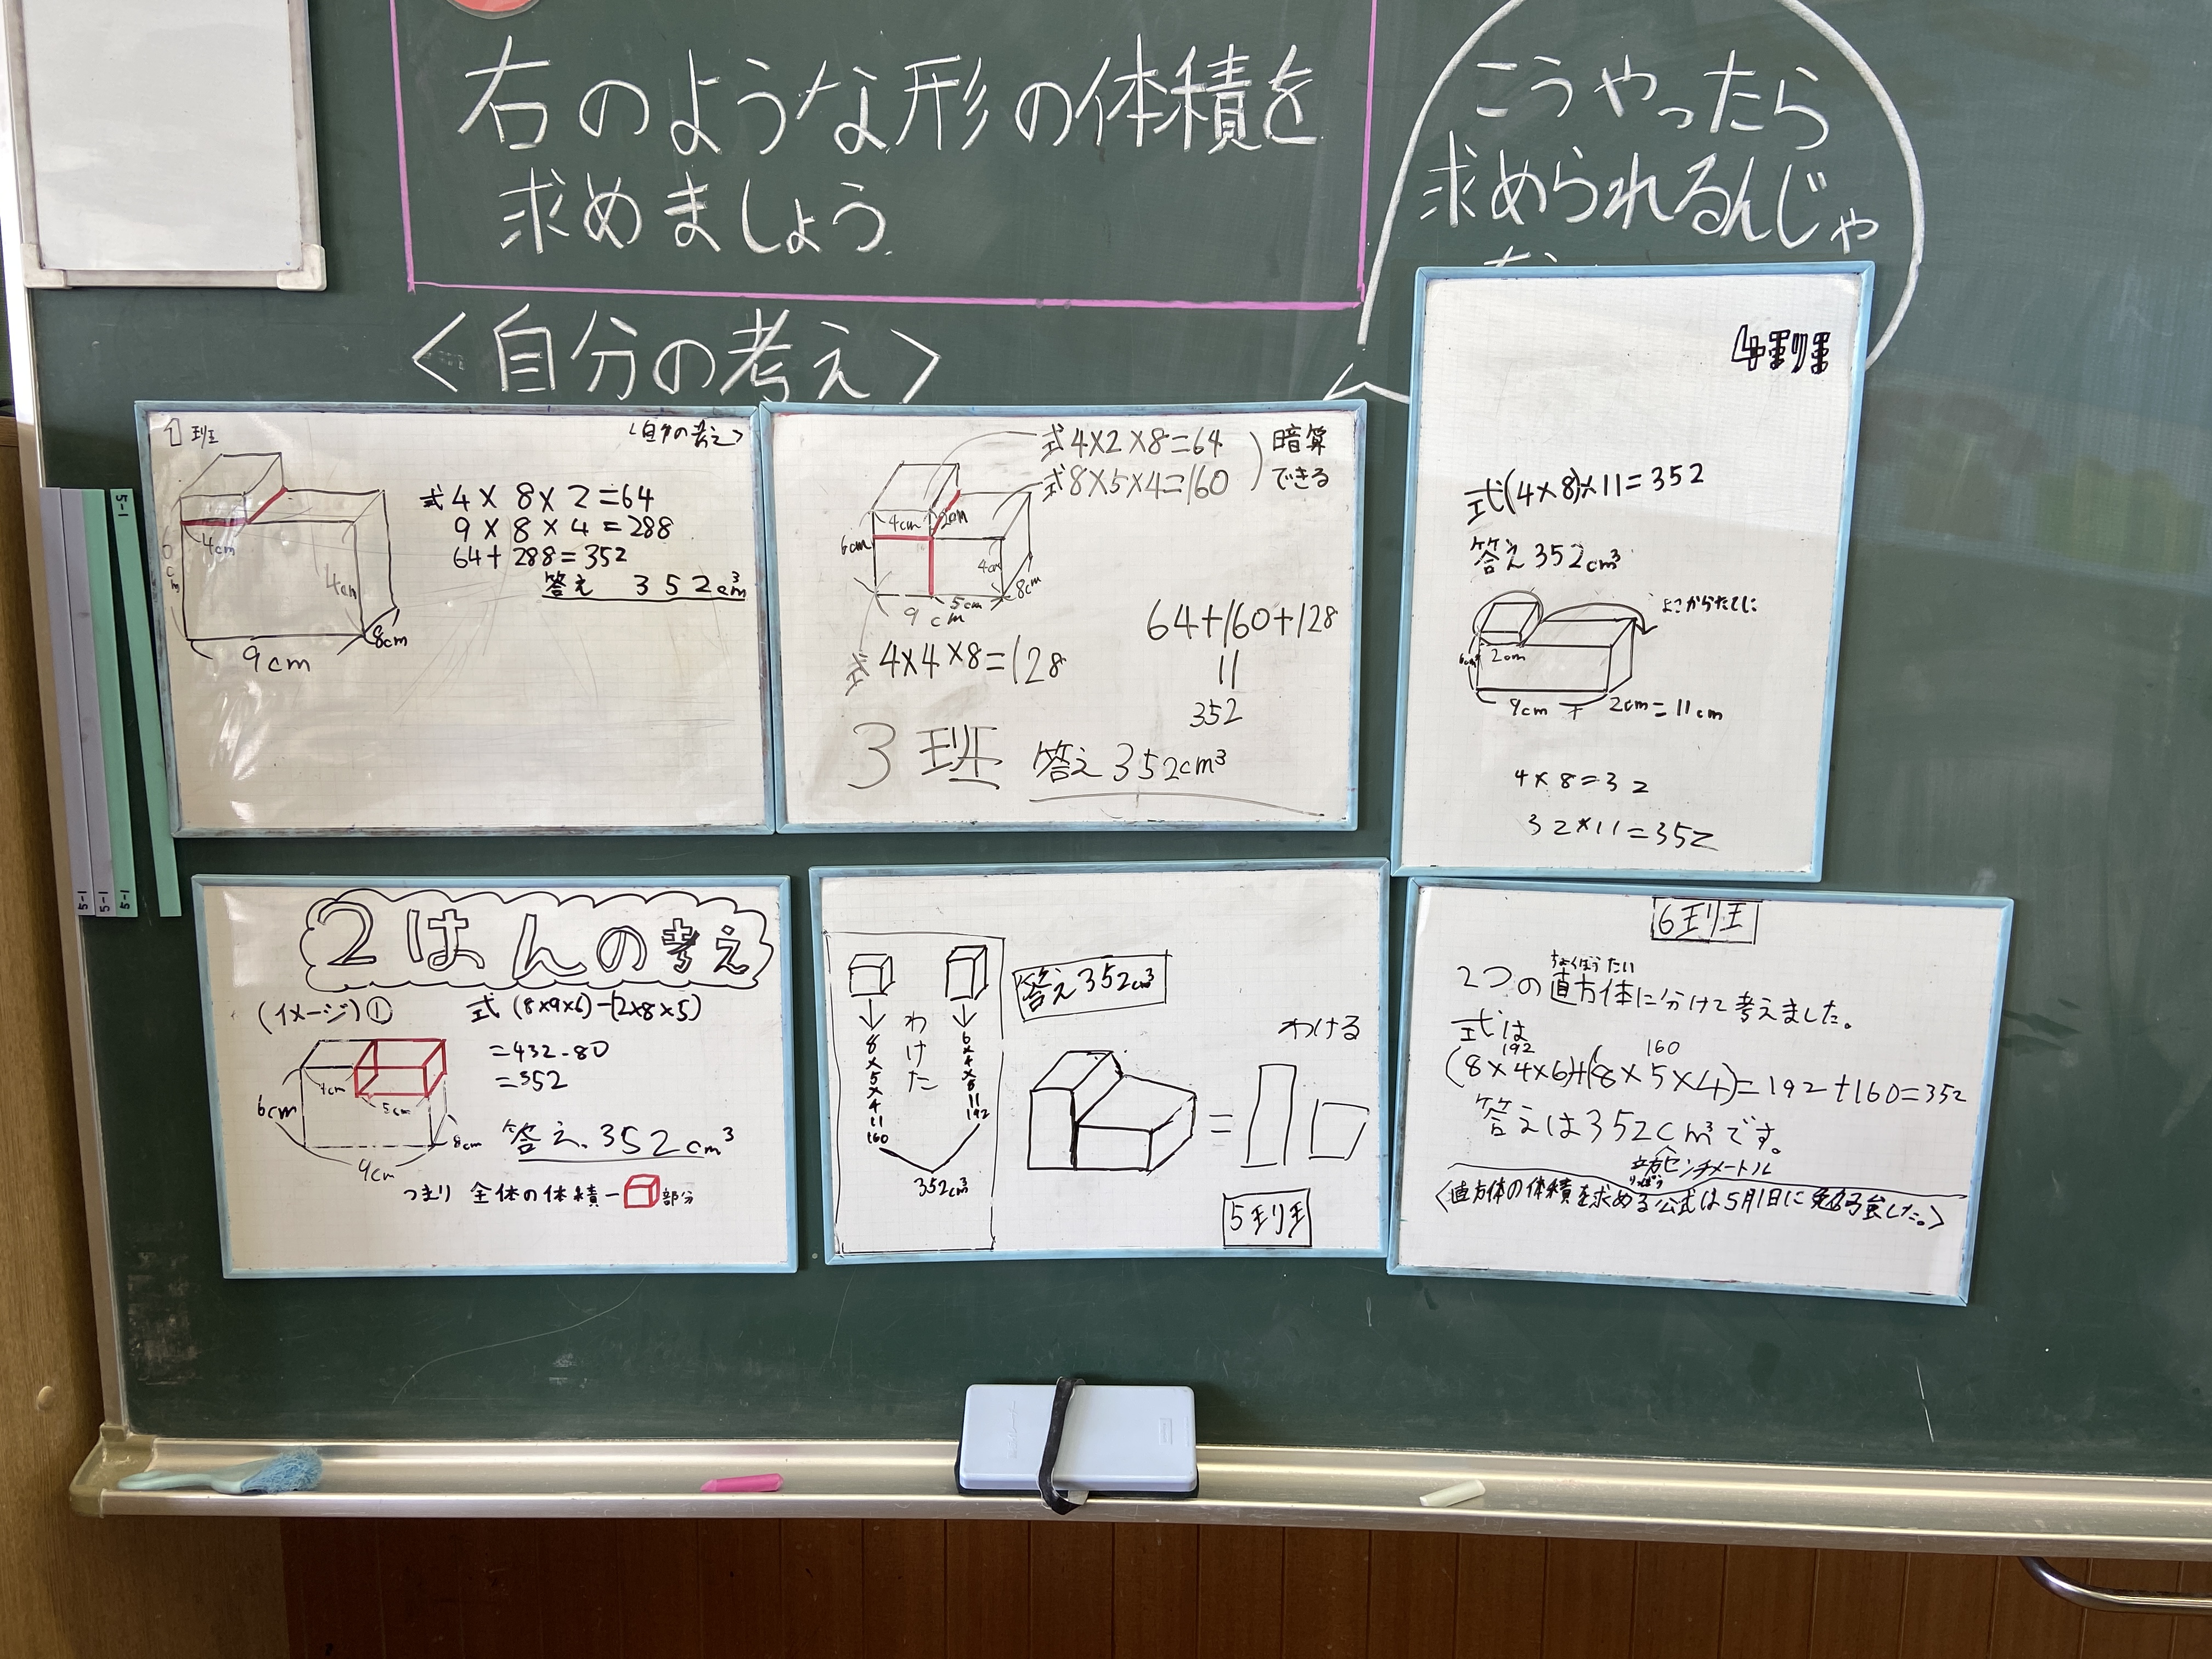 右のような形の体積を
求めましょう
こうやったら
求められるんじゃ
<自分の考え>
1班
<自分の考え>
式4×8×2=64
9×8×4=288
64+288=352
答え 352cm³
4cm
4cm
8cm
9cm
式4×2×8=64
式8×5×4=160
暗算
できる
4cm
2cm
6cm
4cm
8cm
5cm
9cm
式4×4×8=128
64+160+128
11
352
3班
答え352cm³
4班
式(4×8)×11=352
答え352cm³
よこからたてに
6cm
2cm
9cm + 2cm=11cm
4×8=32
32×11=352
2はんの考え
(イメージ)①
式(8×9×6)-(2×8×5)
=432-80
=352
4cm
5cm
6cm
8cm
9cm
答え.352cm³
つまり 全体の体積-
部分
わけた
8×5×4=160
6×4×8=192
352cm³
答え352cm³
わける
=
5班
6班
ちょくほうたい
2つの直方体に分けて考えました。
式は
192
160
(8×4×6)+(8×5×4)=192+160=352
答えは352cm³です。
立方センチメートル
りっぽう
<直方体の体積を求める公式は5月1日に勉強した。>
5-1
5-1
5-1
5-1